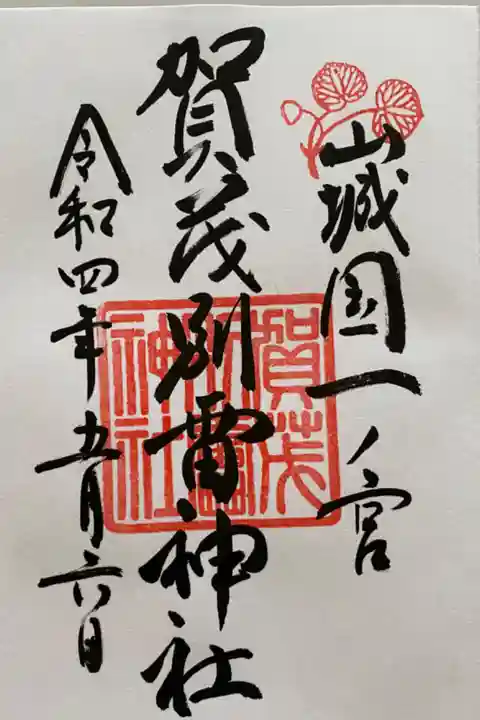 山城国一ノ宮
賀茂別雷神社
令和四年五月六日
賀茂
別雷
神社